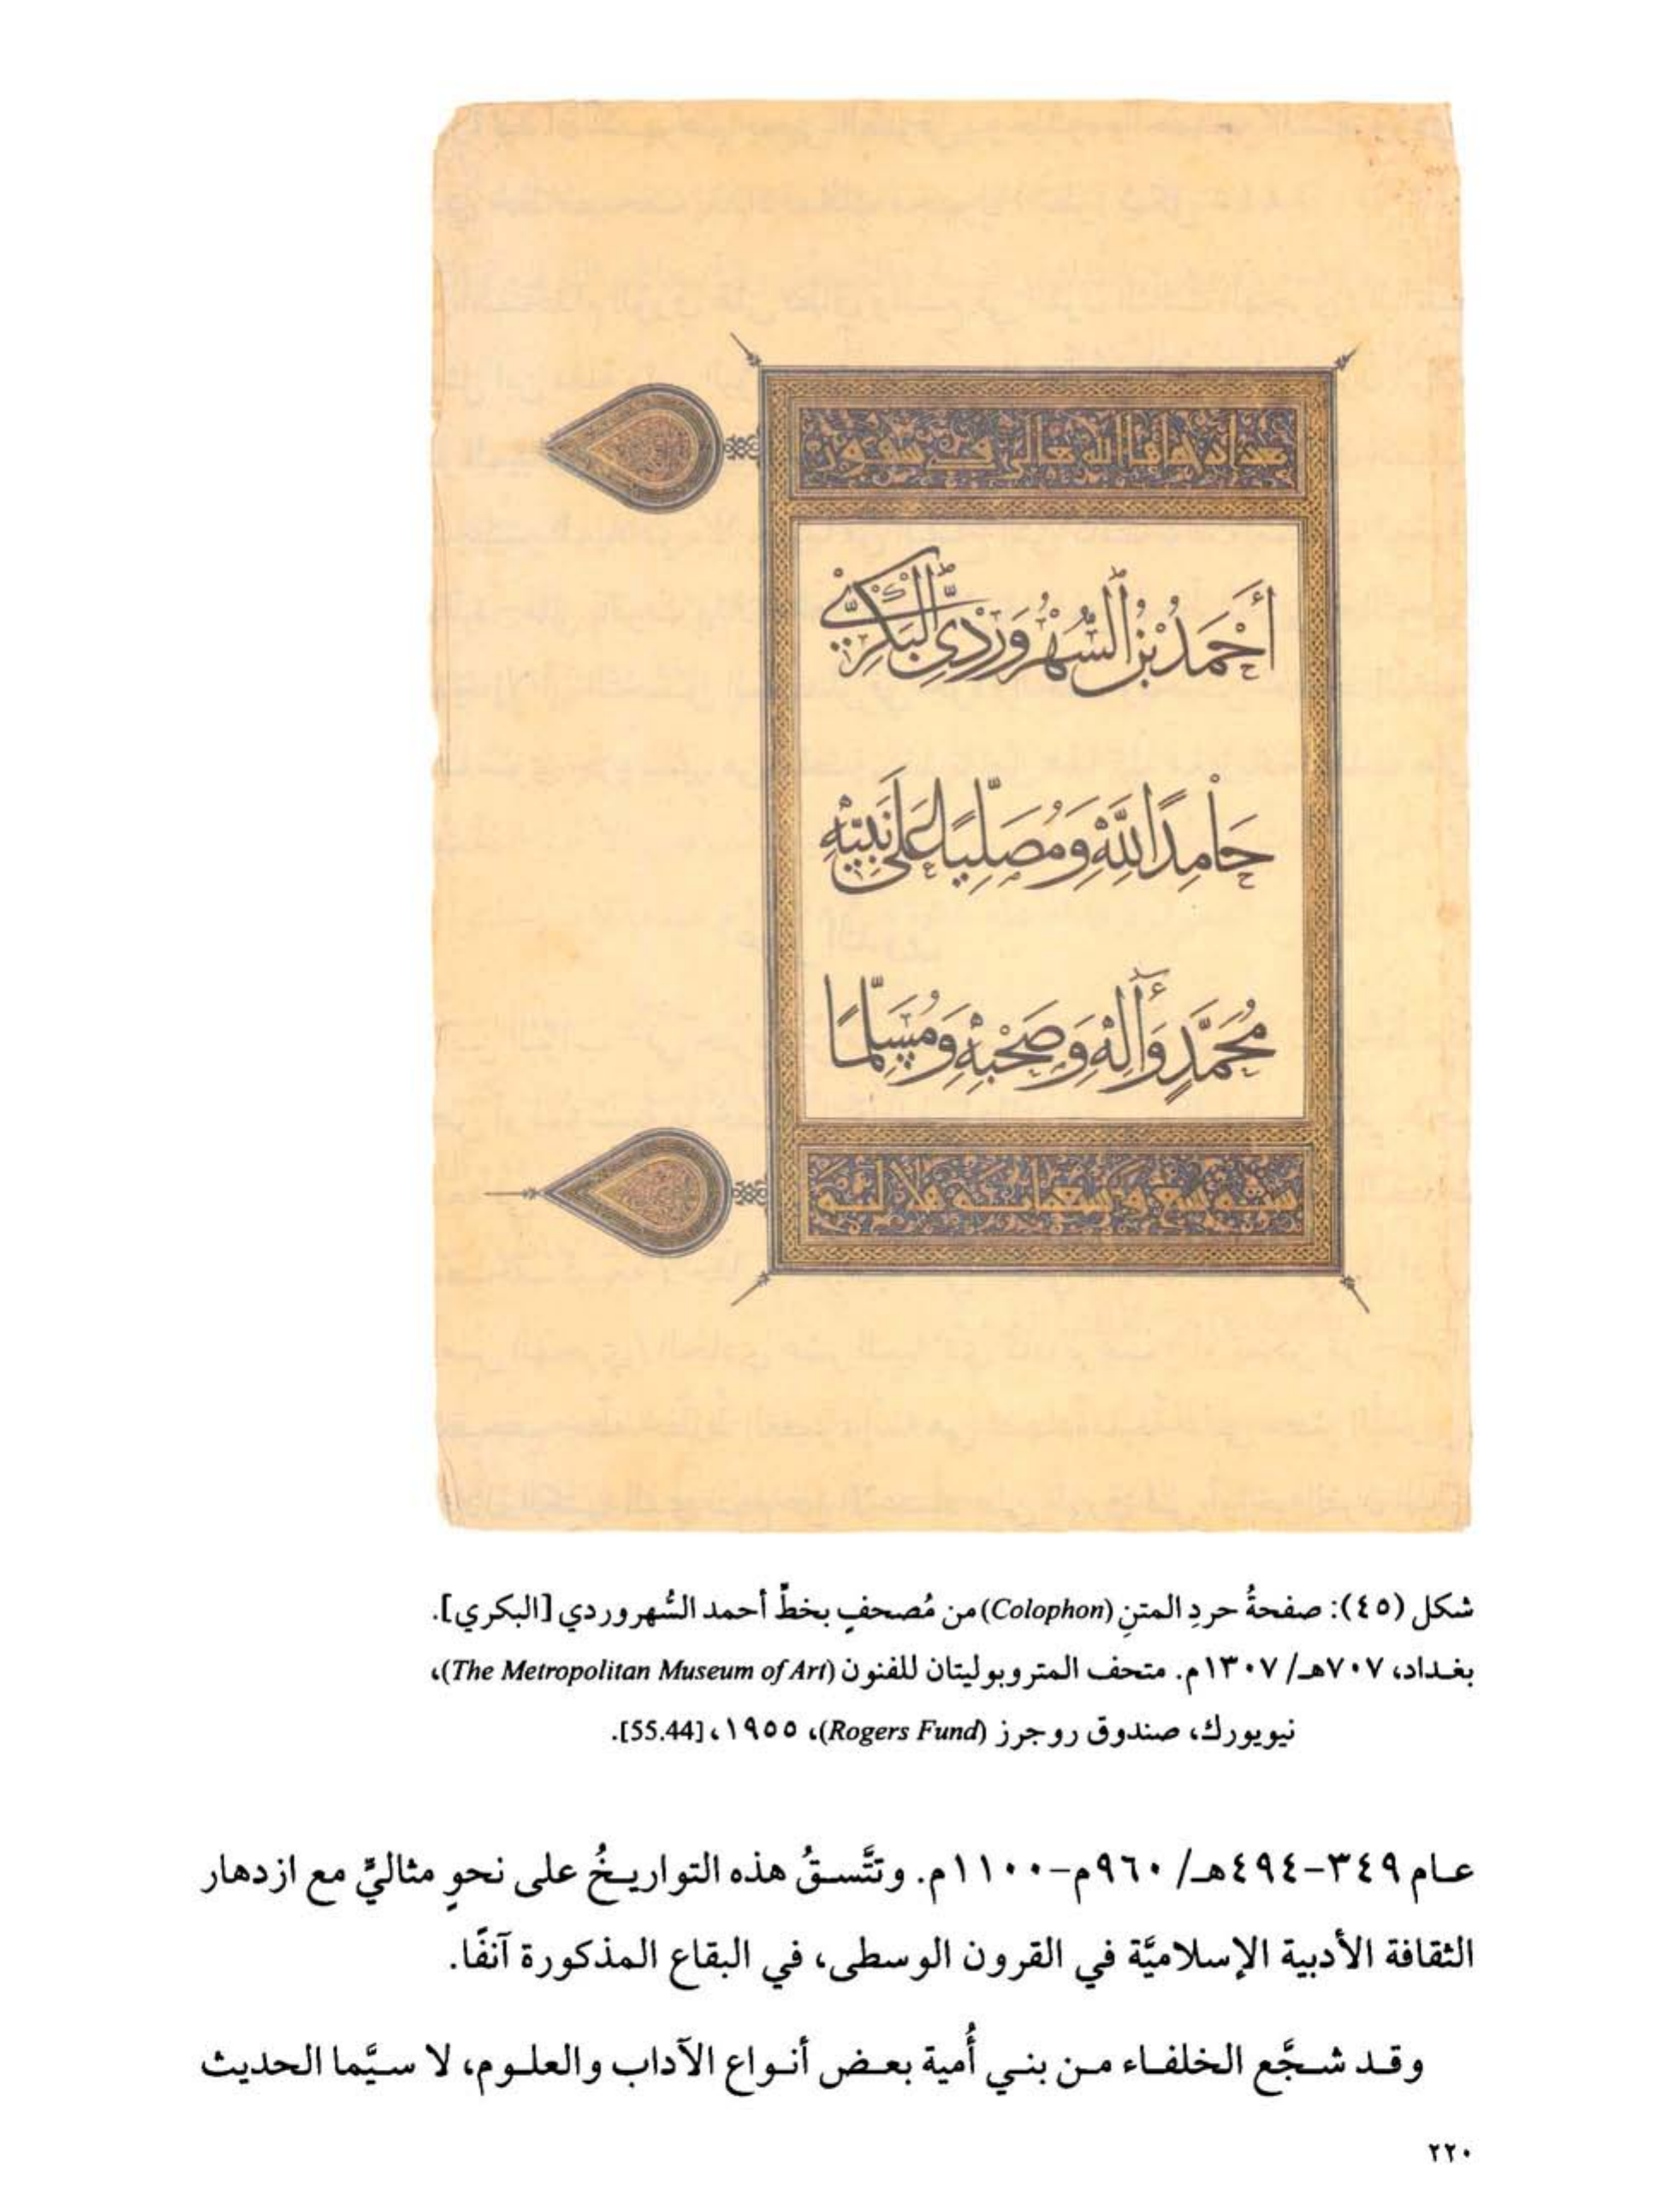 أَحْمَدُ بْنُ السُّهْرَوَرْدِيِّ الْبَكْرِيُّ
حَامِدًا لِلَّهِ وَمُصَلِّيًا عَلَى نَبِيِّهِ
مُحَمَّدٍ وَآلِهِ وَصَحْبِهِ وَمُسَلِّمًا
شكل (٤٥): صفحةُ حردِ المتنِ (Colophon) من مُصحفٍ بخطِّ أحمد السُّهروردي [البكري].
بغداد، ٧٠٧هـ/ ١٣٠٧م. متحف المتروبوليتان للفنون (The Metropolitan Museum of Art)،
نيويورك، صندوق روجرز (Rogers Fund)، ١٩٥٥، [55.44].
عام ٣٤٩-٤٩٤هـ/ ٩٦٠م-١١٠٠م. وتتَّسقُ هذه التواريخُ على نحوٍ مثاليٍّ مع ازدهار
الثقافة الأدبية الإسلاميَّة في القرون الوسطى، في البقاع المذكورة آنفًا.
وقد شجَّع الخلفاء من بني أُمية بعض أنواع الآداب والعلوم، لا سيَّما الحديث
٢٢٠